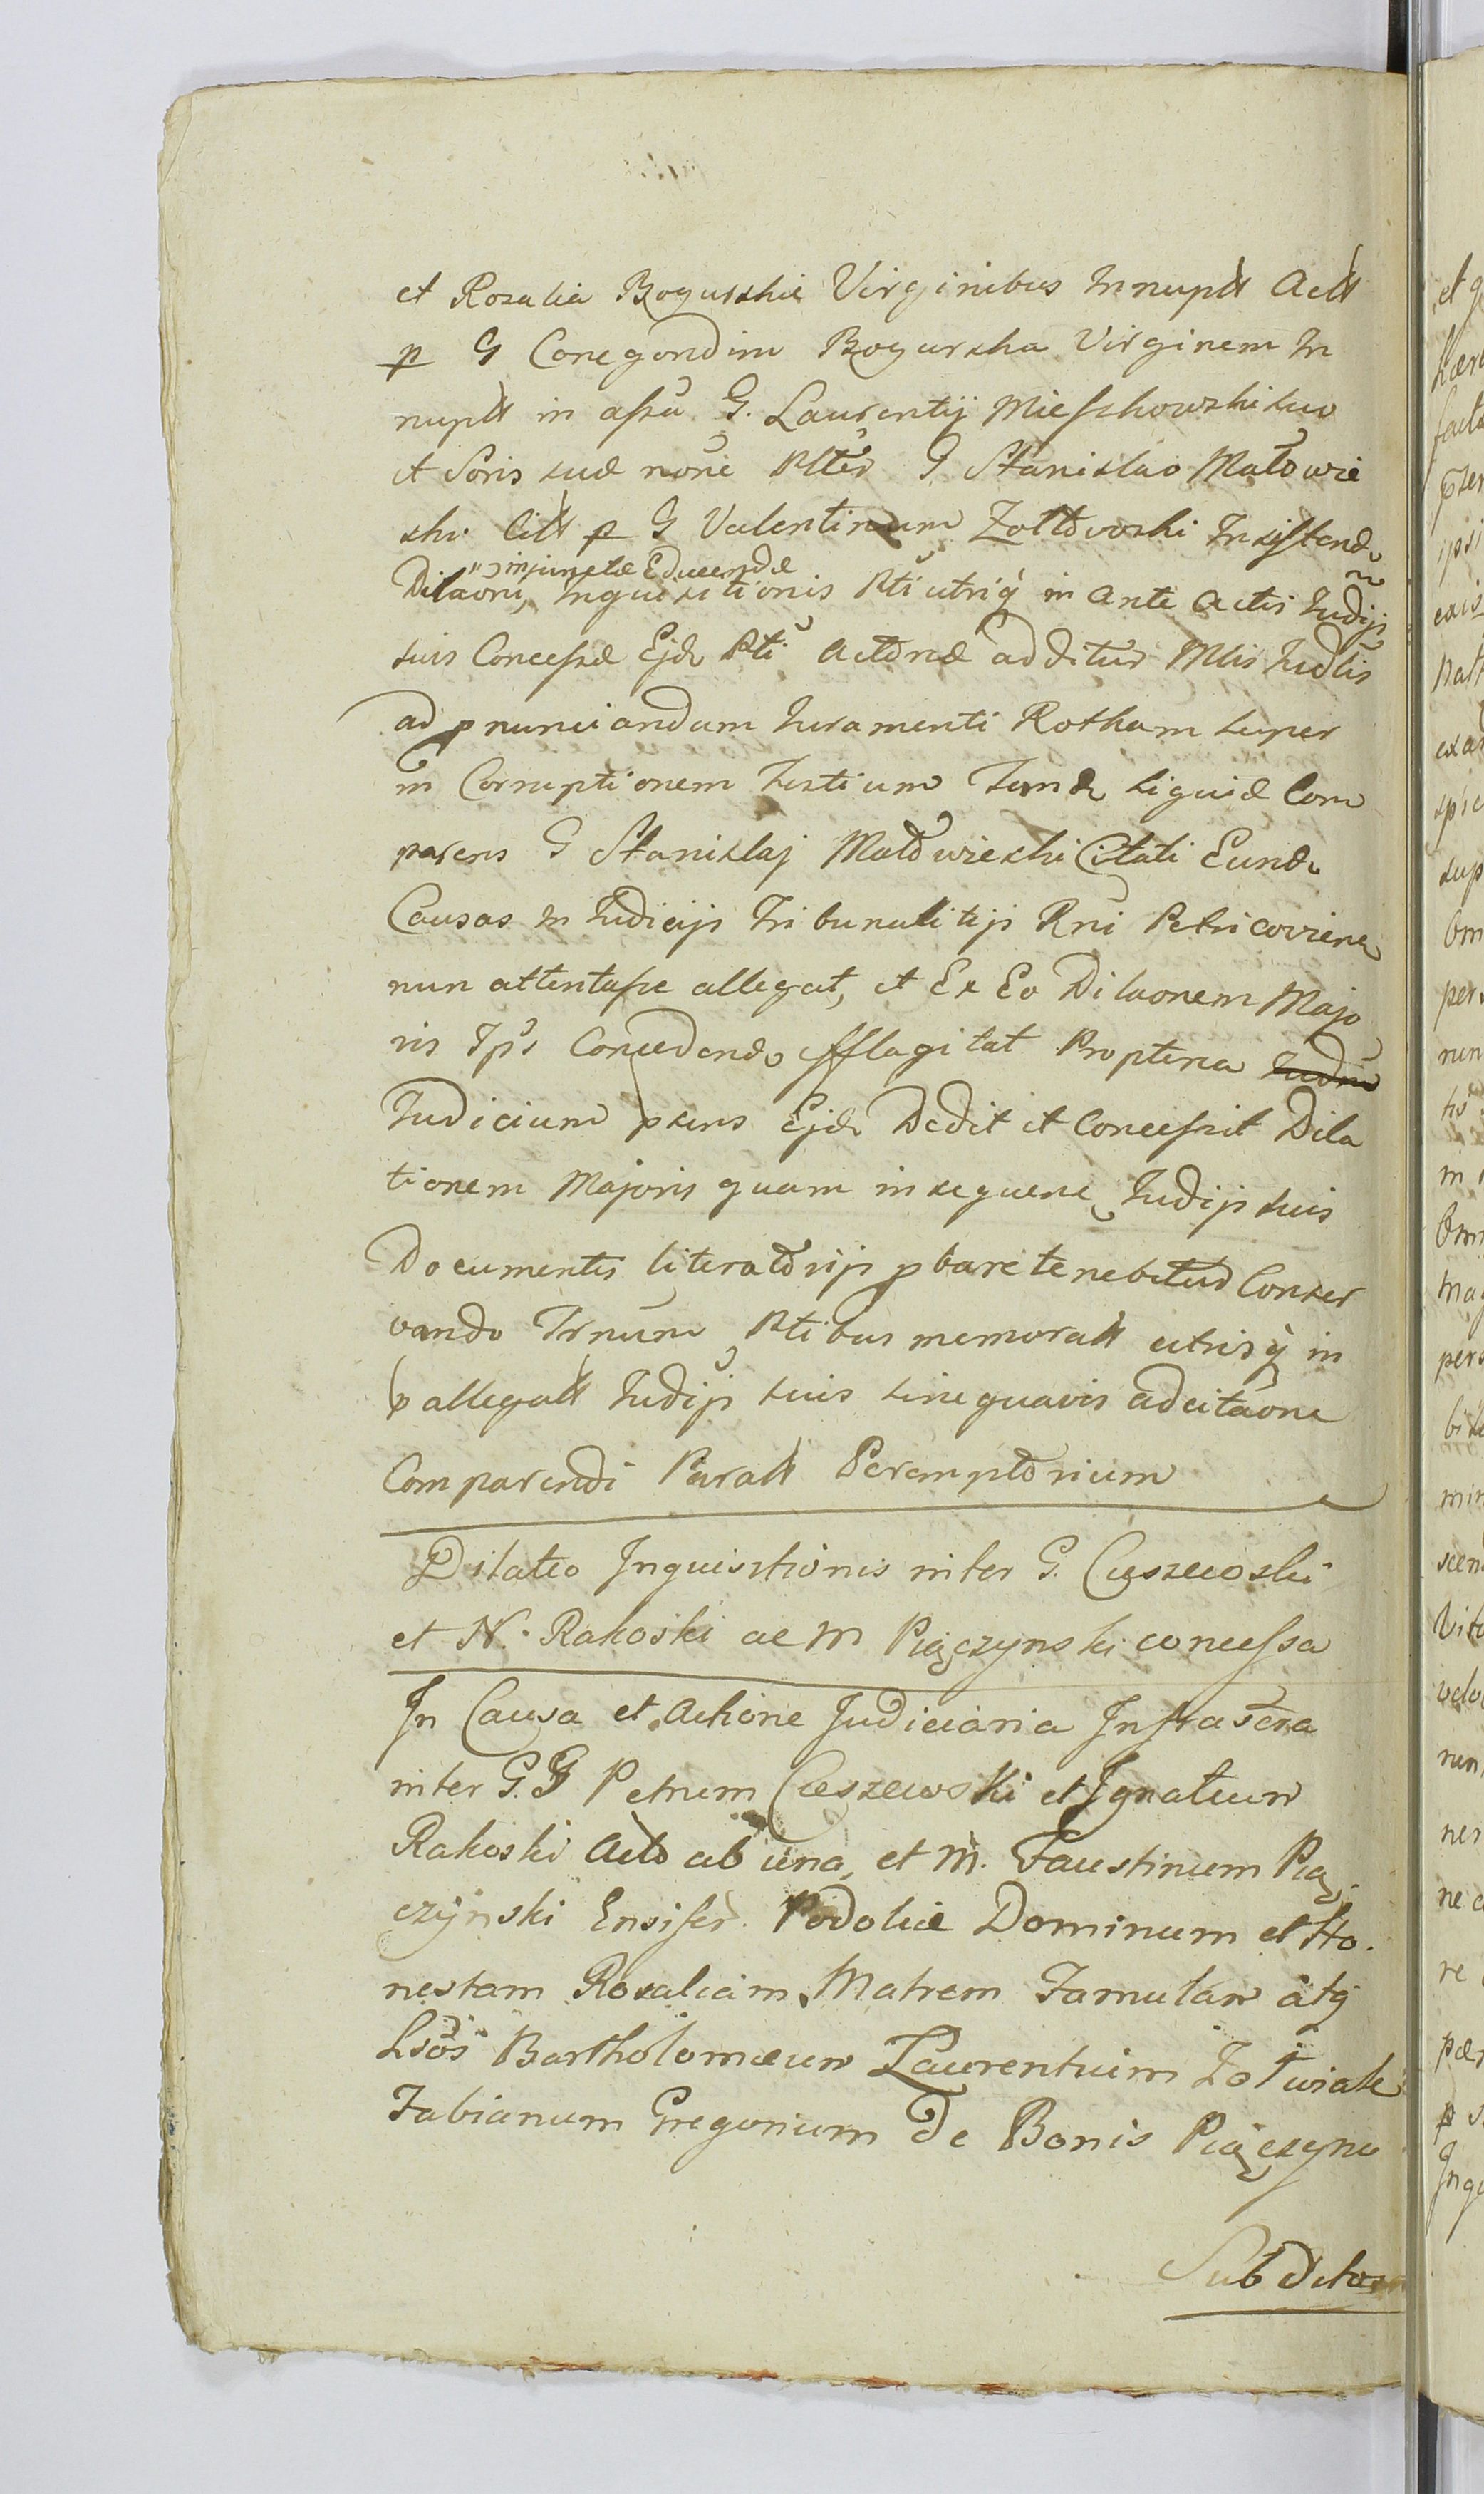 et Rosalia Bogurskie Virginibus Innuptt Actt
p G Conegondim Bogurska Virginem In
nuptt in assa G. Laurentij Mieszkowski suo
et Soris suæ noñe Altër G Stanislao Matowie
ski Citt p G Valentinum Zołtowski Insistendo
injunctæ Educendæ
Dilaoni, Inquisitionis Pti utriq in ante actis Iudijs
suis Concessæ Ejd Pti Actoreæ additur Mlis Iudlis
ad pnunciandum Iuramenti Rotham super
in Corruptionem Testium Tand siquid Com
parens G Stanislaj Matowieski Citati Eund
Causas In Iudicijs Tribunalitijs Rni Petricovien
nun attentasse allegat, et Ex Eo Dilaonem Majo
ris Ips Concedendo efflagitat Propterea Iudm
Iudicium psens Ejd Dedit et Concessit Dila
tionem Majoris quam in sequen Iudijs suis
Documentis literatorijs pbare tenebitur Conser
vando Trnum Ptibus memoratt utrisq in
p allegatt Iudijs suis sine quavis adcitaone
Comparendi Paratt Peremptorium
Dilatio Inquisitionis inter G. Cieszewski
et N. Rakoski ac M Piączynski concessa
In Causa et Actione Judiciaria Infrascra
inter G.G Petrum Cieszewski et Ignatium
Rakoski Acto ab una, et M. Faustinum Pią
czÿnski Ensifer. Podoliæ Dominum et Ho.
nestam Rosaliam Matrem Famulam atq
Lsos Bartholomæum Laurentium Zołwiak
Fabianum Gregorium De Bonis Piączyno
Subditos